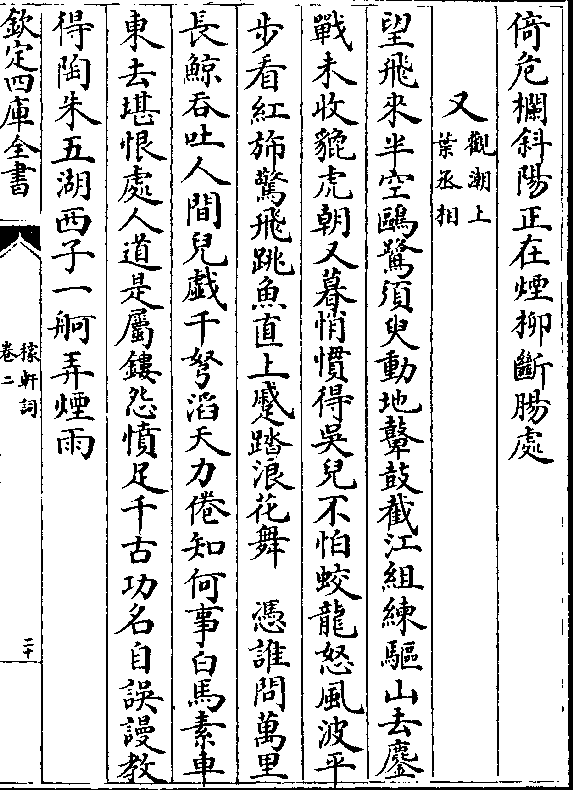 倚危欄斜陽正在煙柳斷膓處
又觀潮上葉丞相
望飛來半空鷗鷺須臾動地鼙鼓截江組練驅山去鏖
戰未收貔虎朝又暮悄慣得吳兒不怕蛟龍怒風波平
步看紅斾驚飛跳魚直上蹙踏浪花舞　憑誰問萬里
長鯨吞吐人間兒戲千弩滔天力倦知何事白馬素車
東去堪恨處人道是屬鏤怨憤足千古功名自誤謾教
得陶朱五湖西子一舸弄煙雨
欽定四庫全書
稼軒詞
卷二
二十